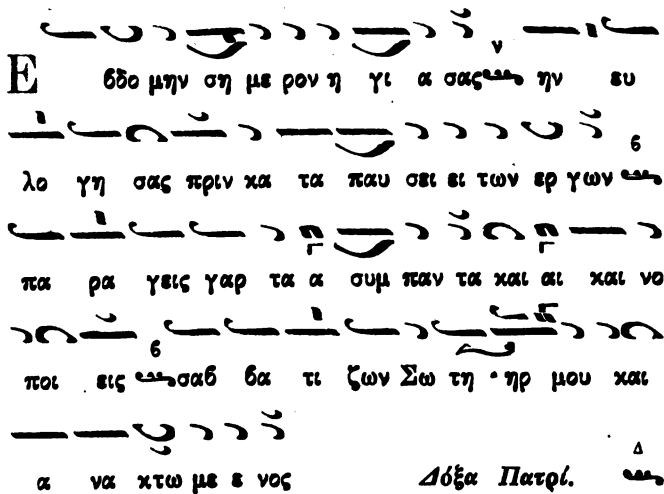 ν
Ε βδο μην ση με ρον η γι α σας ην ευ
β
λο γη σας πριν κα τα παυ σει ει των ερ γων
πα ρα γεις γαρ τα α συμ παν τα και αι και νο
β
ποι εις σαβ βα τι ζων Σω τη ηρ μου και
Δ
α να κτω με ε νος Δόξα Πατρί.